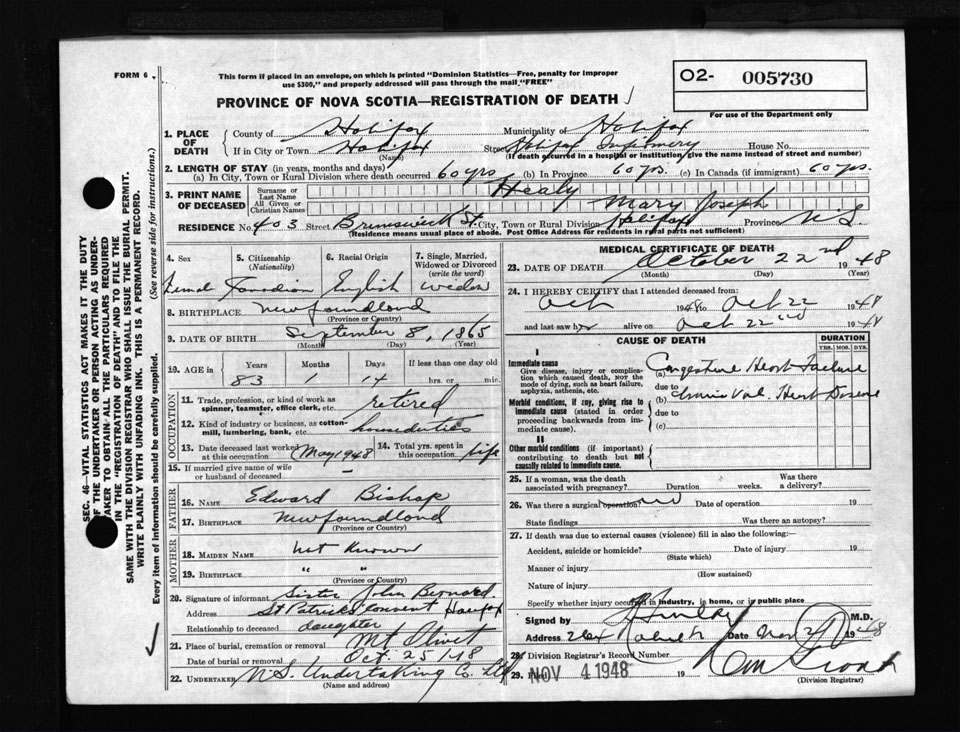 FORM 6
This form if placed in an envelope, on which is printed "Dominion Statistics—Free, penalty for improper
use $300," and properly addressed will pass through the mail "FREE"
O2- 005730
PROVINCE OF NOVA SCOTIA—REGISTRATION OF DEATH
For use of the Department only
1. PLACE OF DEATH
County of Halifax Municipality of Halifax
If in City or Town Halifax Street Halifax Infirmary House No.
(Name) (If death occurred in a hospital or institution give the name instead of street and number)
2. LENGTH OF STAY (in years, months and days)
(a) In City, Town or Rural Division where death occurred 60 yrs (b) In Province 60 yrs. (c) In Canada (if immigrant) 60 yrs.
3. PRINT NAME OF DECEASED
Surname or Last Name Healy
All Given or Christian Names Mary Joseph
RESIDENCE No. 403 Street Brunswick St. City, Town or Rural Division Halifax Province N.S.
(Residence means usual place of abode. Post Office Address for residents in rural parts not sufficient)
4. Sex
5. Citizenship (Nationality) Canadian
6. Racial Origin English
7. Single, Married, Widowed or Divorced (write the word)
8. BIRTHPLACE Newfoundland
(Province or Country)
9. DATE OF BIRTH September 8, 1865
(Month) (Day) (Year)
10. AGE in Years Months Days If less than one day old
83 1 14 hrs. or min.
OCCUPATION
11. Trade, profession, or kind of work as spinner, teamster, office clerk, etc. retired
12. Kind of industry or business, as cotton-mill, lumbering, bank, etc. house duties
13. Date deceased last worked at this occupation May 1948
14. Total yrs. spent in this occupation life
15. If married give name of wife or husband of deceased
FATHER
16. NAME Edward Bishop
17. BIRTHPLACE Newfoundland
(Province or Country)
MOTHER
18. MAIDEN NAME not known
19. BIRTHPLACE " "
(Province or Country)
20. Signature of informant Sister John Bernard.
Address St Patricks Convent Halifax
Relationship to deceased daughter
21. Place of burial, cremation or removal Mt Olivet
Date of burial or removal Oct. 25/48
22. UNDERTAKER N.S. Undertaking Co. Ltd
(Name and address)
MEDICAL CERTIFICATE OF DEATH
23. DATE OF DEATH October 22nd 1948
(Month) (Day) (Year)
24. I HEREBY CERTIFY that I attended deceased from:
Oct 1948 to Oct 22 1948
and last saw her alive on Oct 22nd 1948
CAUSE OF DEATH
DURATION
YRS. MOS. DYS.
I
Immediate cause
Give disease, injury or complication which caused death, NOT the mode of dying, such as heart failure, asphyxia, asthenia, etc.
(a) Congestive Heart Failure
due to
Morbid conditions, if any, giving rise to immediate cause (stated in order proceeding backwards from immediate cause).
(b) Chronic Val. Heart Disease
due to
(c)
II
Other morbid conditions (if important) contributing to death but not causally related to immediate cause.
25. If a woman, was the death associated with pregnancy? Duration weeks. Was there a delivery?
26. Was there a surgical operation Date of operation 19
State findings Was there an autopsy?
27. If death was due to external causes (violence) fill in also the following:—
Accident, suicide or homicide? Date of injury 19
(State which)
Manner of injury
(How sustained)
Nature of injury
Specify whether injury occurred in industry, in home, or in public place
Signed by M.D.
Address Date Nov 1948
28. Division Registrar's Record Number
29. Filed NOV 4 1948 19
(Division Registrar)
SEC. 46—VITAL STATISTICS ACT MAKES IT THE DUTY
OF THE UNDERTAKER OR PERSON ACTING AS UNDER-
TAKER TO OBTAIN ALL THE PARTICULARS REQUIRED
IN THE "REGISTRATION OF DEATH" AND TO FILE THE
SAME WITH THE DIVISION REGISTRAR WHO SHALL ISSUE THE BURIAL PERMIT.
WRITE PLAINLY WITH UNFADING INK. THIS IS A PERMANENT RECORD.
Every item of information should be carefully supplied. (See reverse side for instructions.)